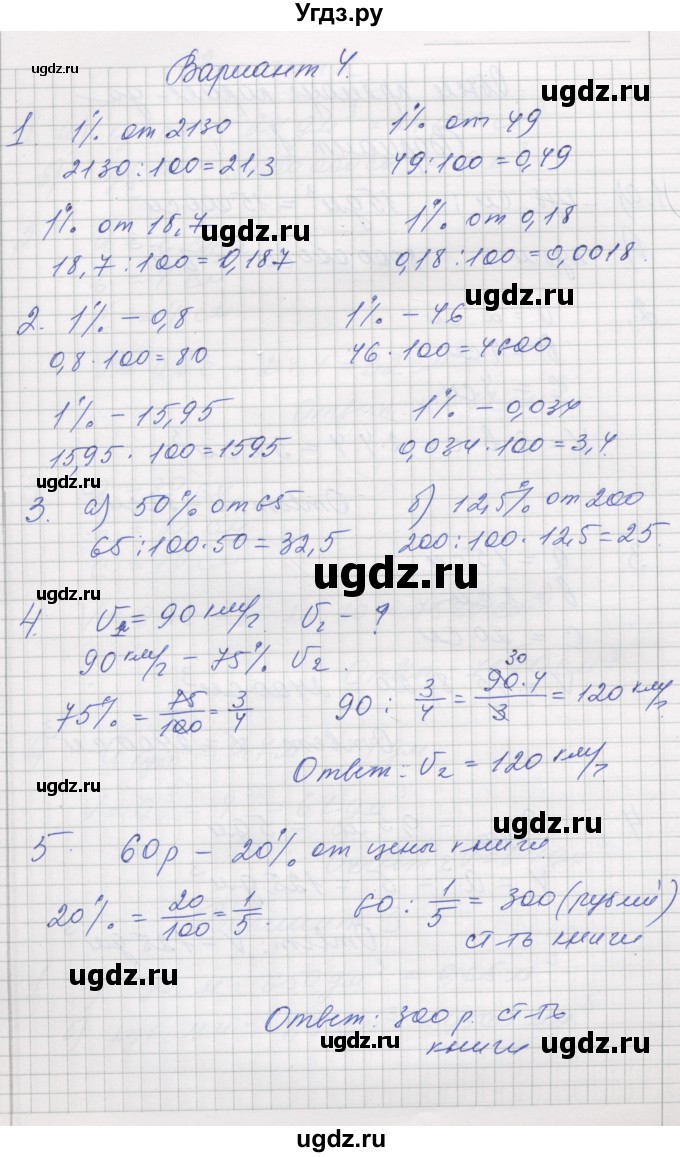 Угдз.ру
Вариант 4.
1 1% от 2130 1% от 49
2130 : 100 = 21,3 49 : 100 = 0,49
1% от 18,7 1% от 0,18
18,7 : 100 = 0,187 0,18 : 100 = 0,0018.
2. 1% – 0,8 1% – 46
0,8 · 100 = 80 46 · 100 = 4600
1% – 15,95 1% – 0,034
15,95 · 100 = 1595 0,034 · 100 = 3,4.
3. а) 50% от 65 б) 12,5% от 200
65 : 100 · 50 = 32,5 200 : 100 · 12,5 = 25.
4. V₁ = 90 км/ч V₂ – ?
90 км/ч – 75% V₂.
75% = 75/100 = 3/4 90 : 3/4 = 90·4/3 = 120 км/ч
30
Ответ: V₂ = 120 км/ч
5 60р – 20% от цены книги.
20% = 20/100 = 1/5. 60 : 1/5 = 300 (рублей)
ст-ть книги
Ответ: 300 р. ст-ть
книги
ugdz.ru
ugdz.ru
ugdz.ru
ugdz.ru
ugdz.ru
ugdz.ru
ugdz.ru
ugdz.ru
ugdz.ru
ugdz.ru
ugdz.ru
ugdz.ru
ugdz.ru
ugdz.ru